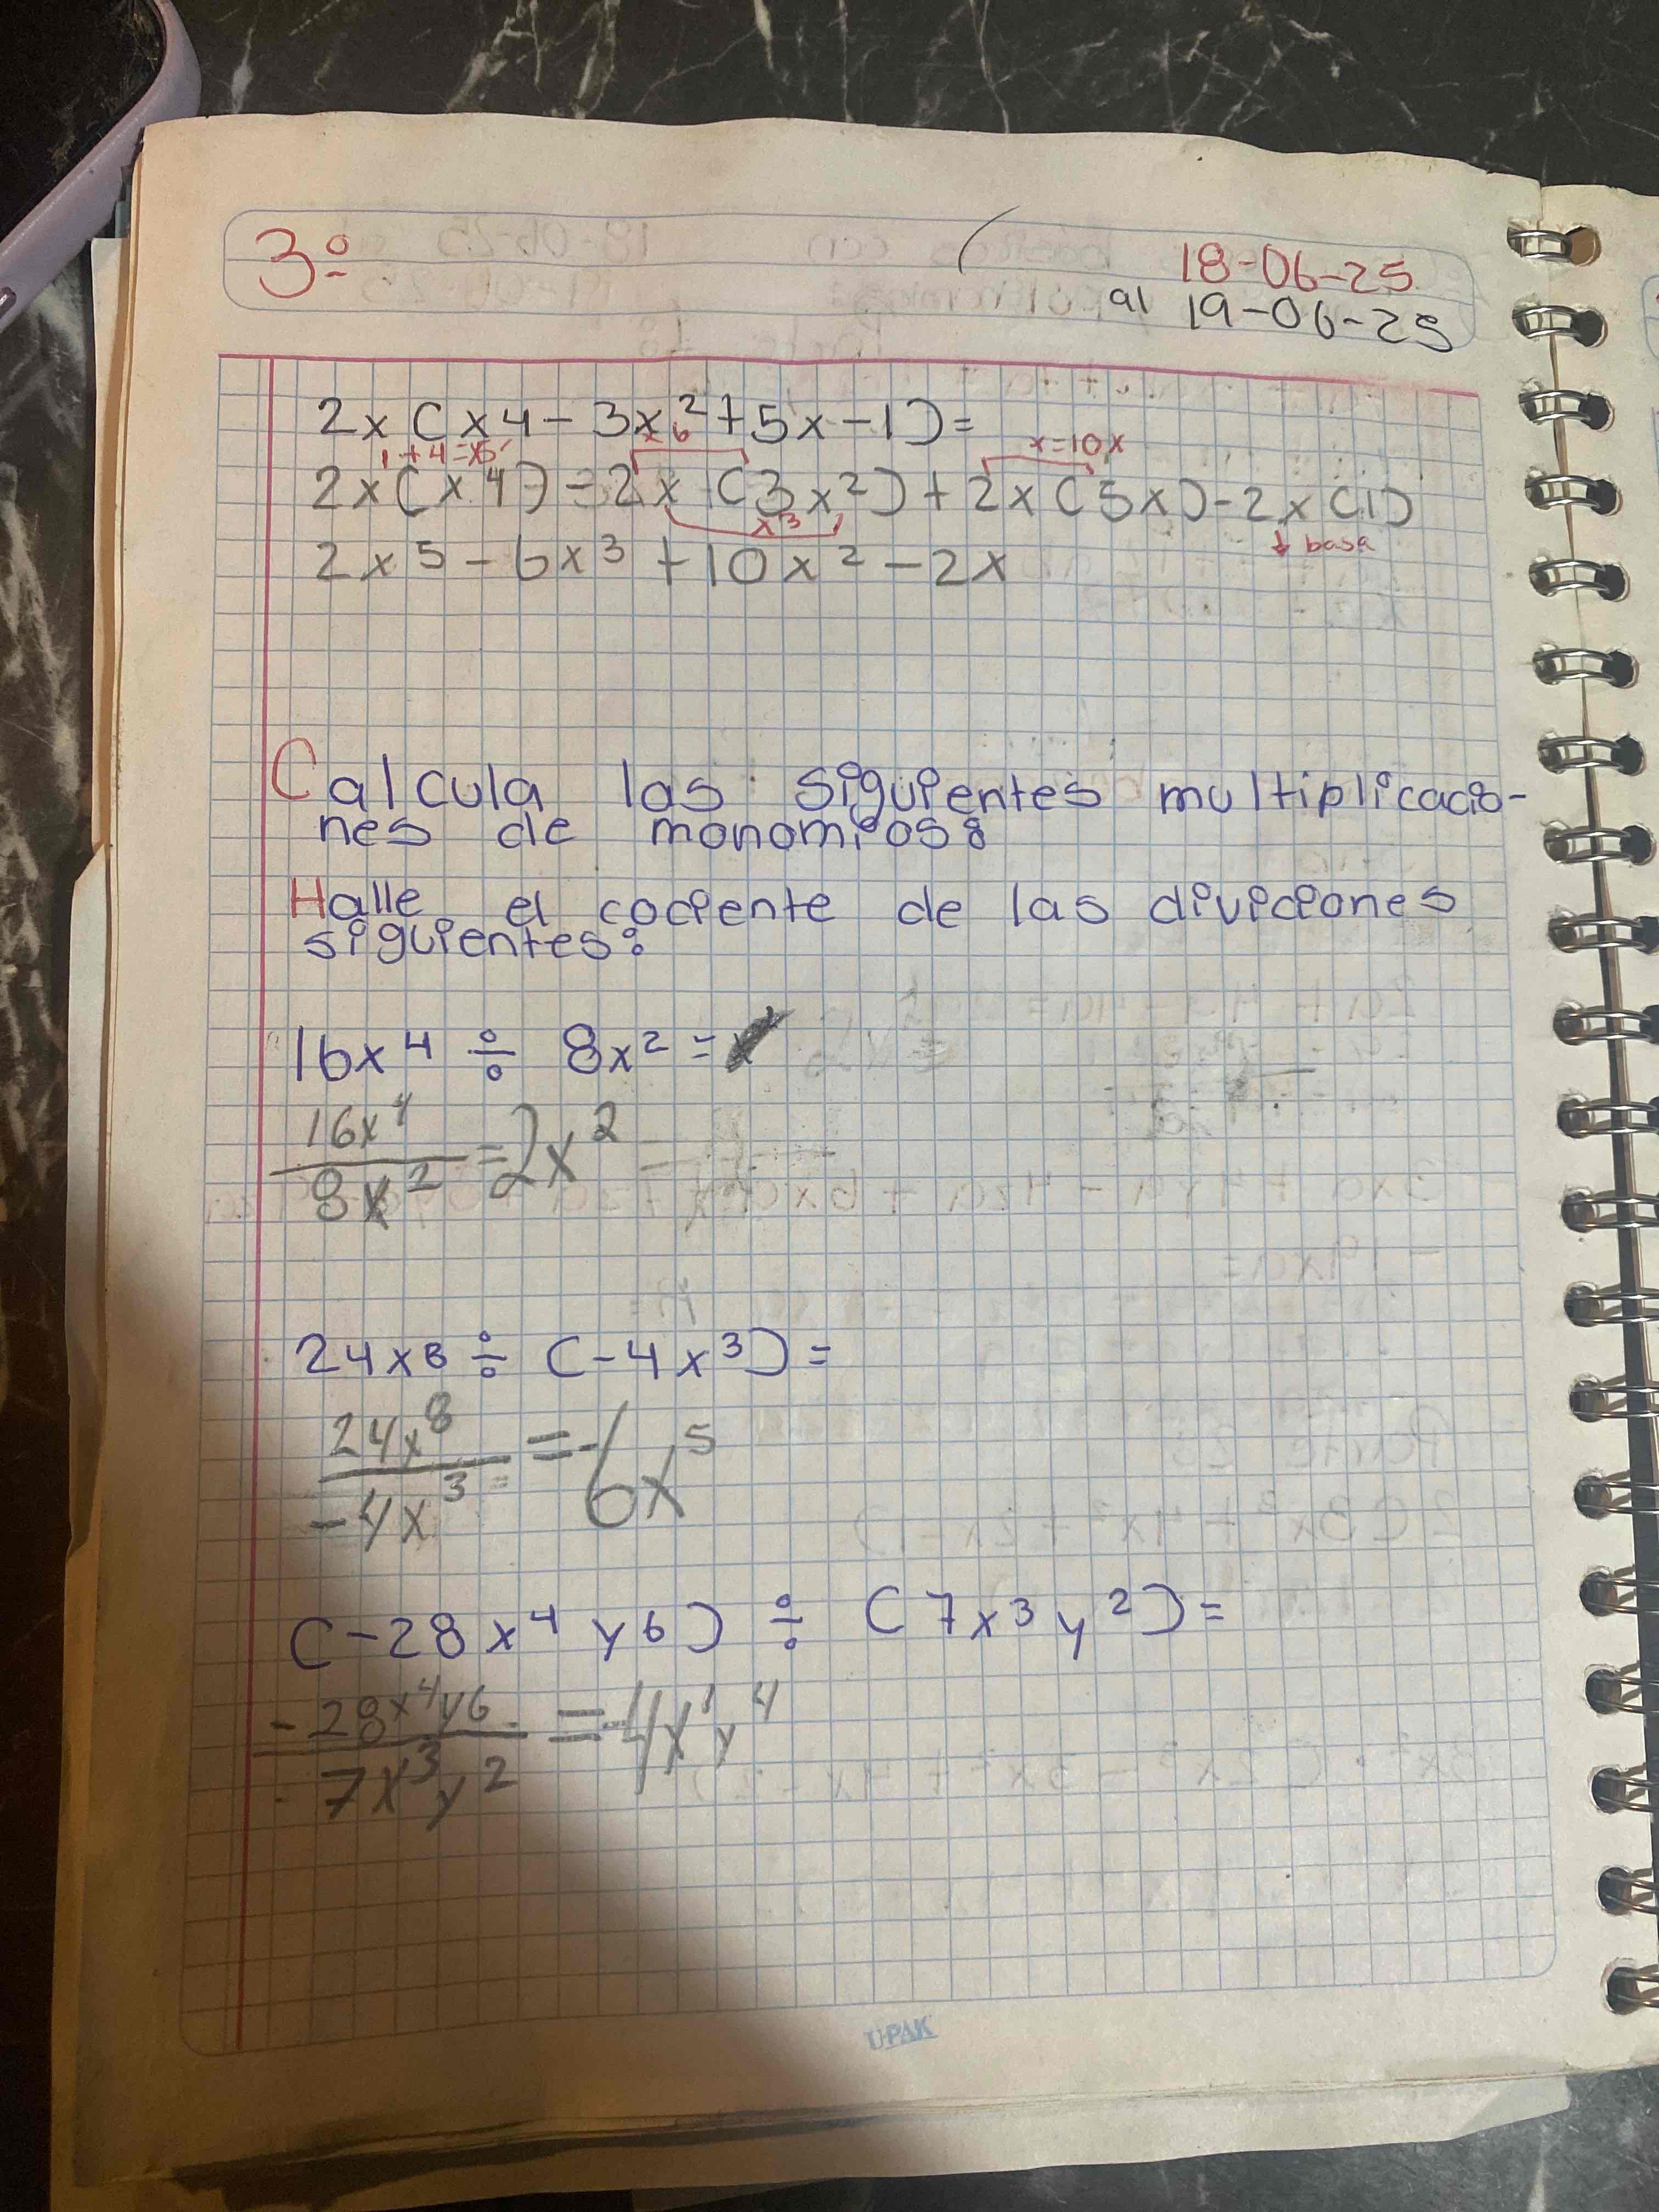 3º
18-06-25
al 19-06-25
2x(x4-3x²+5x-1)=
1+4=x5
x 6
x=10x
2x(x4)-2x(3x²)+2x(5x)-2x(1)
x3
↓ basa
2x5-6x³+10x²-2x
Calcula las siguientes multiplicacio-
nes de monomios:
Halle el cociente de las diviciones
siguientes:
16x⁴ ÷ 8x² =
16x⁴
8x²
=2x²
24x8 ÷ (-4x³)=
24x⁸
-4x³
=-6x⁵
(-28x⁴y6) ÷ (7x³y²)=
-28x⁴y6
7x³y²
=-4x¹y⁴
U-PAK